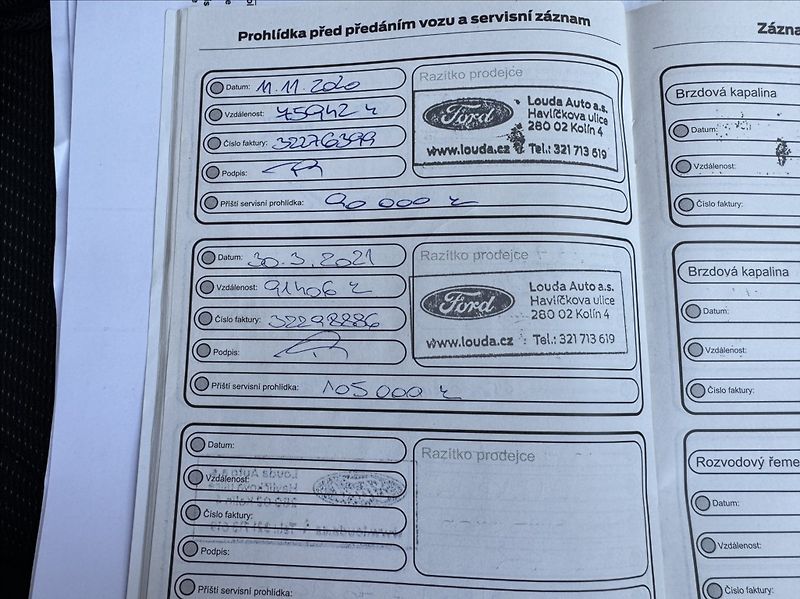 Prohlídka před předáním vozu a servisní záznam
Datum: 11.11.2020
Vzdálenost: 75942 km
Číslo faktury: 32276399
Podpis:
Příští servisní prohlídka: 90 000 km
Razítko prodejce
Ford
Louda Auto a.s.
Havlíčkova ulice
280 02 Kolín 4
www.louda.cz Tel.: 321 713 619
Datum: 30.3.2021
Vzdálenost: 91406 km
Číslo faktury: 32298886
Podpis:
Příští servisní prohlídka: 105 000 km
Razítko prodejce
Ford
Louda Auto a.s.
Havlíčkova ulice
280 02 Kolín 4
www.louda.cz Tel.: 321 713 619
Datum:
Vzdálenost:
Číslo faktury:
Podpis:
Příští servisní prohlídka:
Razítko prodejce
Brzdová kapalina
Datum:
Vzdálenost:
Číslo faktury:
Brzdová kapalina
Datum:
Vzdálenost:
Číslo faktury:
Datum:
Vzdálenost:
Číslo faktury: